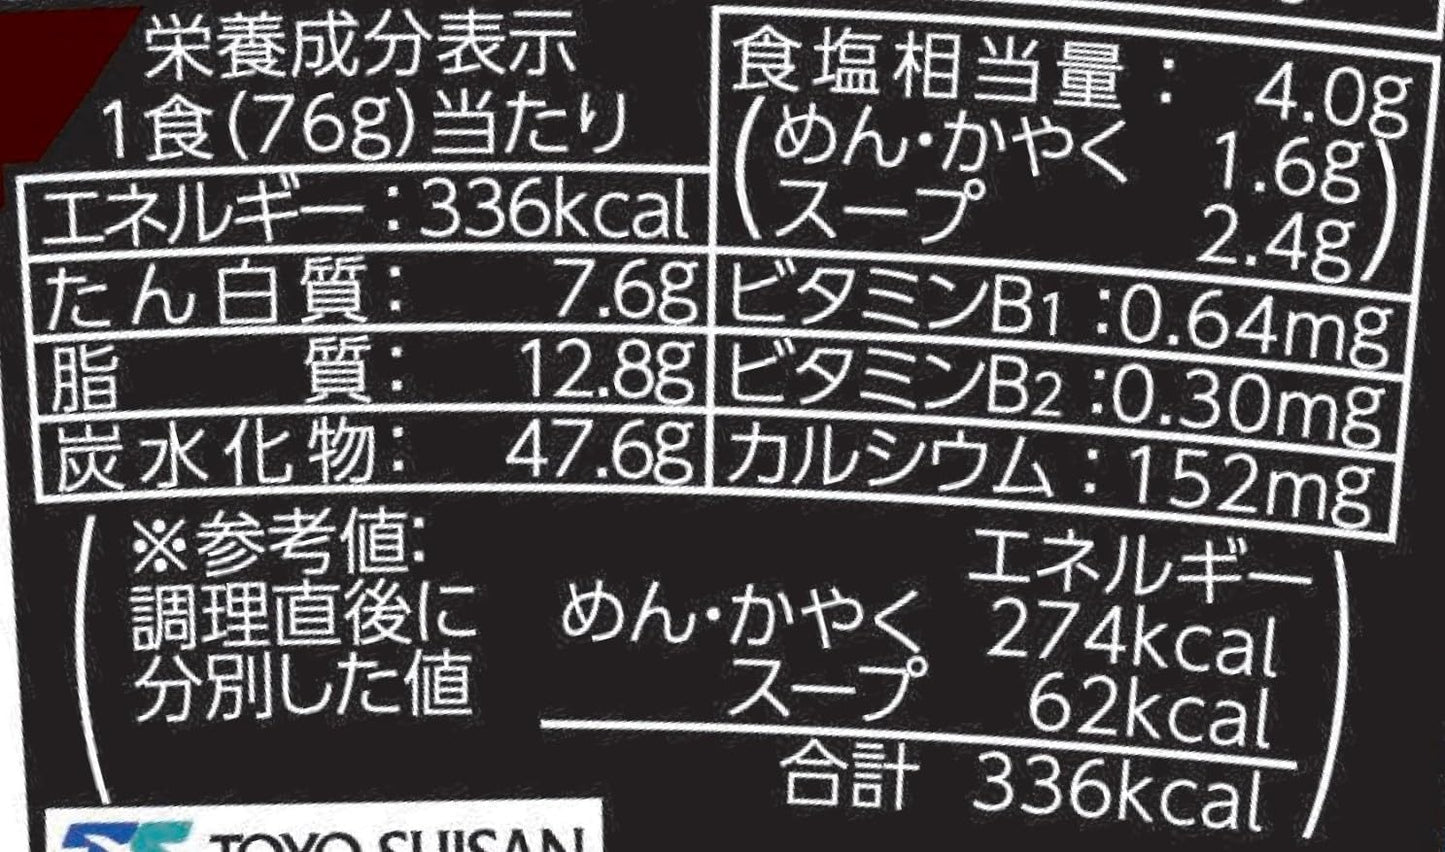 栄養成分表示
1食(76g)当たり
エネルギー:336kcal
たん白質: 7.6g
脂質: 12.8g
炭水化物: 47.6g
食塩相当量: 4.0g
(めん・かやく 1.6g
スープ 2.4g)
ビタミンB1:0.64mg
ビタミンB2:0.30mg
カルシウム:152mg
(※参考値:
調理直後に
分別した値
エネルギー
めん・かやく 274kcal
スープ 62kcal
合計 336kcal)
TOYO SUISAN